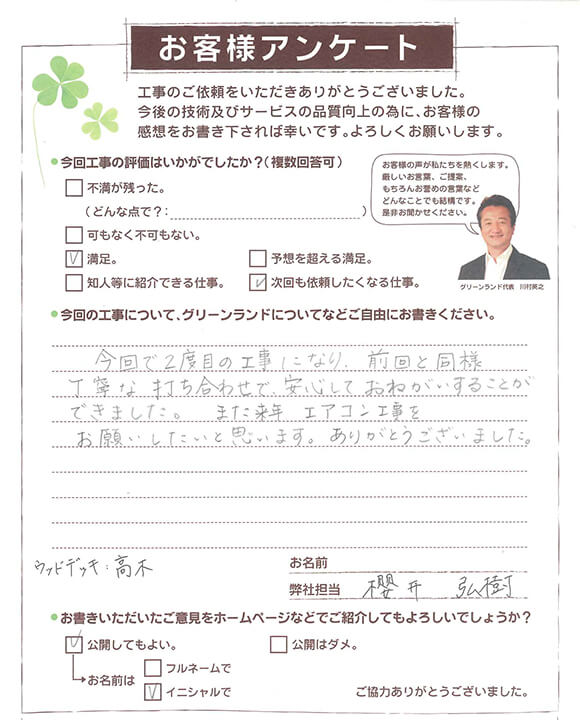 お客様アンケート
工事のご依頼をいただきありがとうございました。
今後の技術及びサービスの品質向上の為に、お客様の
感想をお書き下されば幸いです。よろしくお願いします。
●今回工事の評価はいかがでしたか？(複数回答可)
不満が残った。
(どんな点で？: )
可もなく不可もない。
満足。
予想を超える満足。
知人等に紹介できる仕事。
次回も依頼したくなる仕事。
お客様の声が私たちを熱くします。
厳しいお言葉、ご提案、
もちろんお誉めの言葉など
どんなことでも結構です。
是非お聞かせください。
グリーンランド代表 川村英之
●今回の工事について、グリーンランドについてなどご自由にお書きください。
今回で2度目の工事になり、前回と同様
丁寧な打ち合わせで、安心しておねがいすることが
できました。 また来年 エアコン工事を
お願いしたいと思います。ありがとうございました。
ウッドデッキ:高木
お名前
弊社担当 櫻井 弘樹
●お書きいただいたご意見をホームページなどでご紹介してもよろしいでしょうか？
公開してもよい。
公開はダメ。
お名前は
フルネームで
イニシャルで
ご協力ありがとうございました。